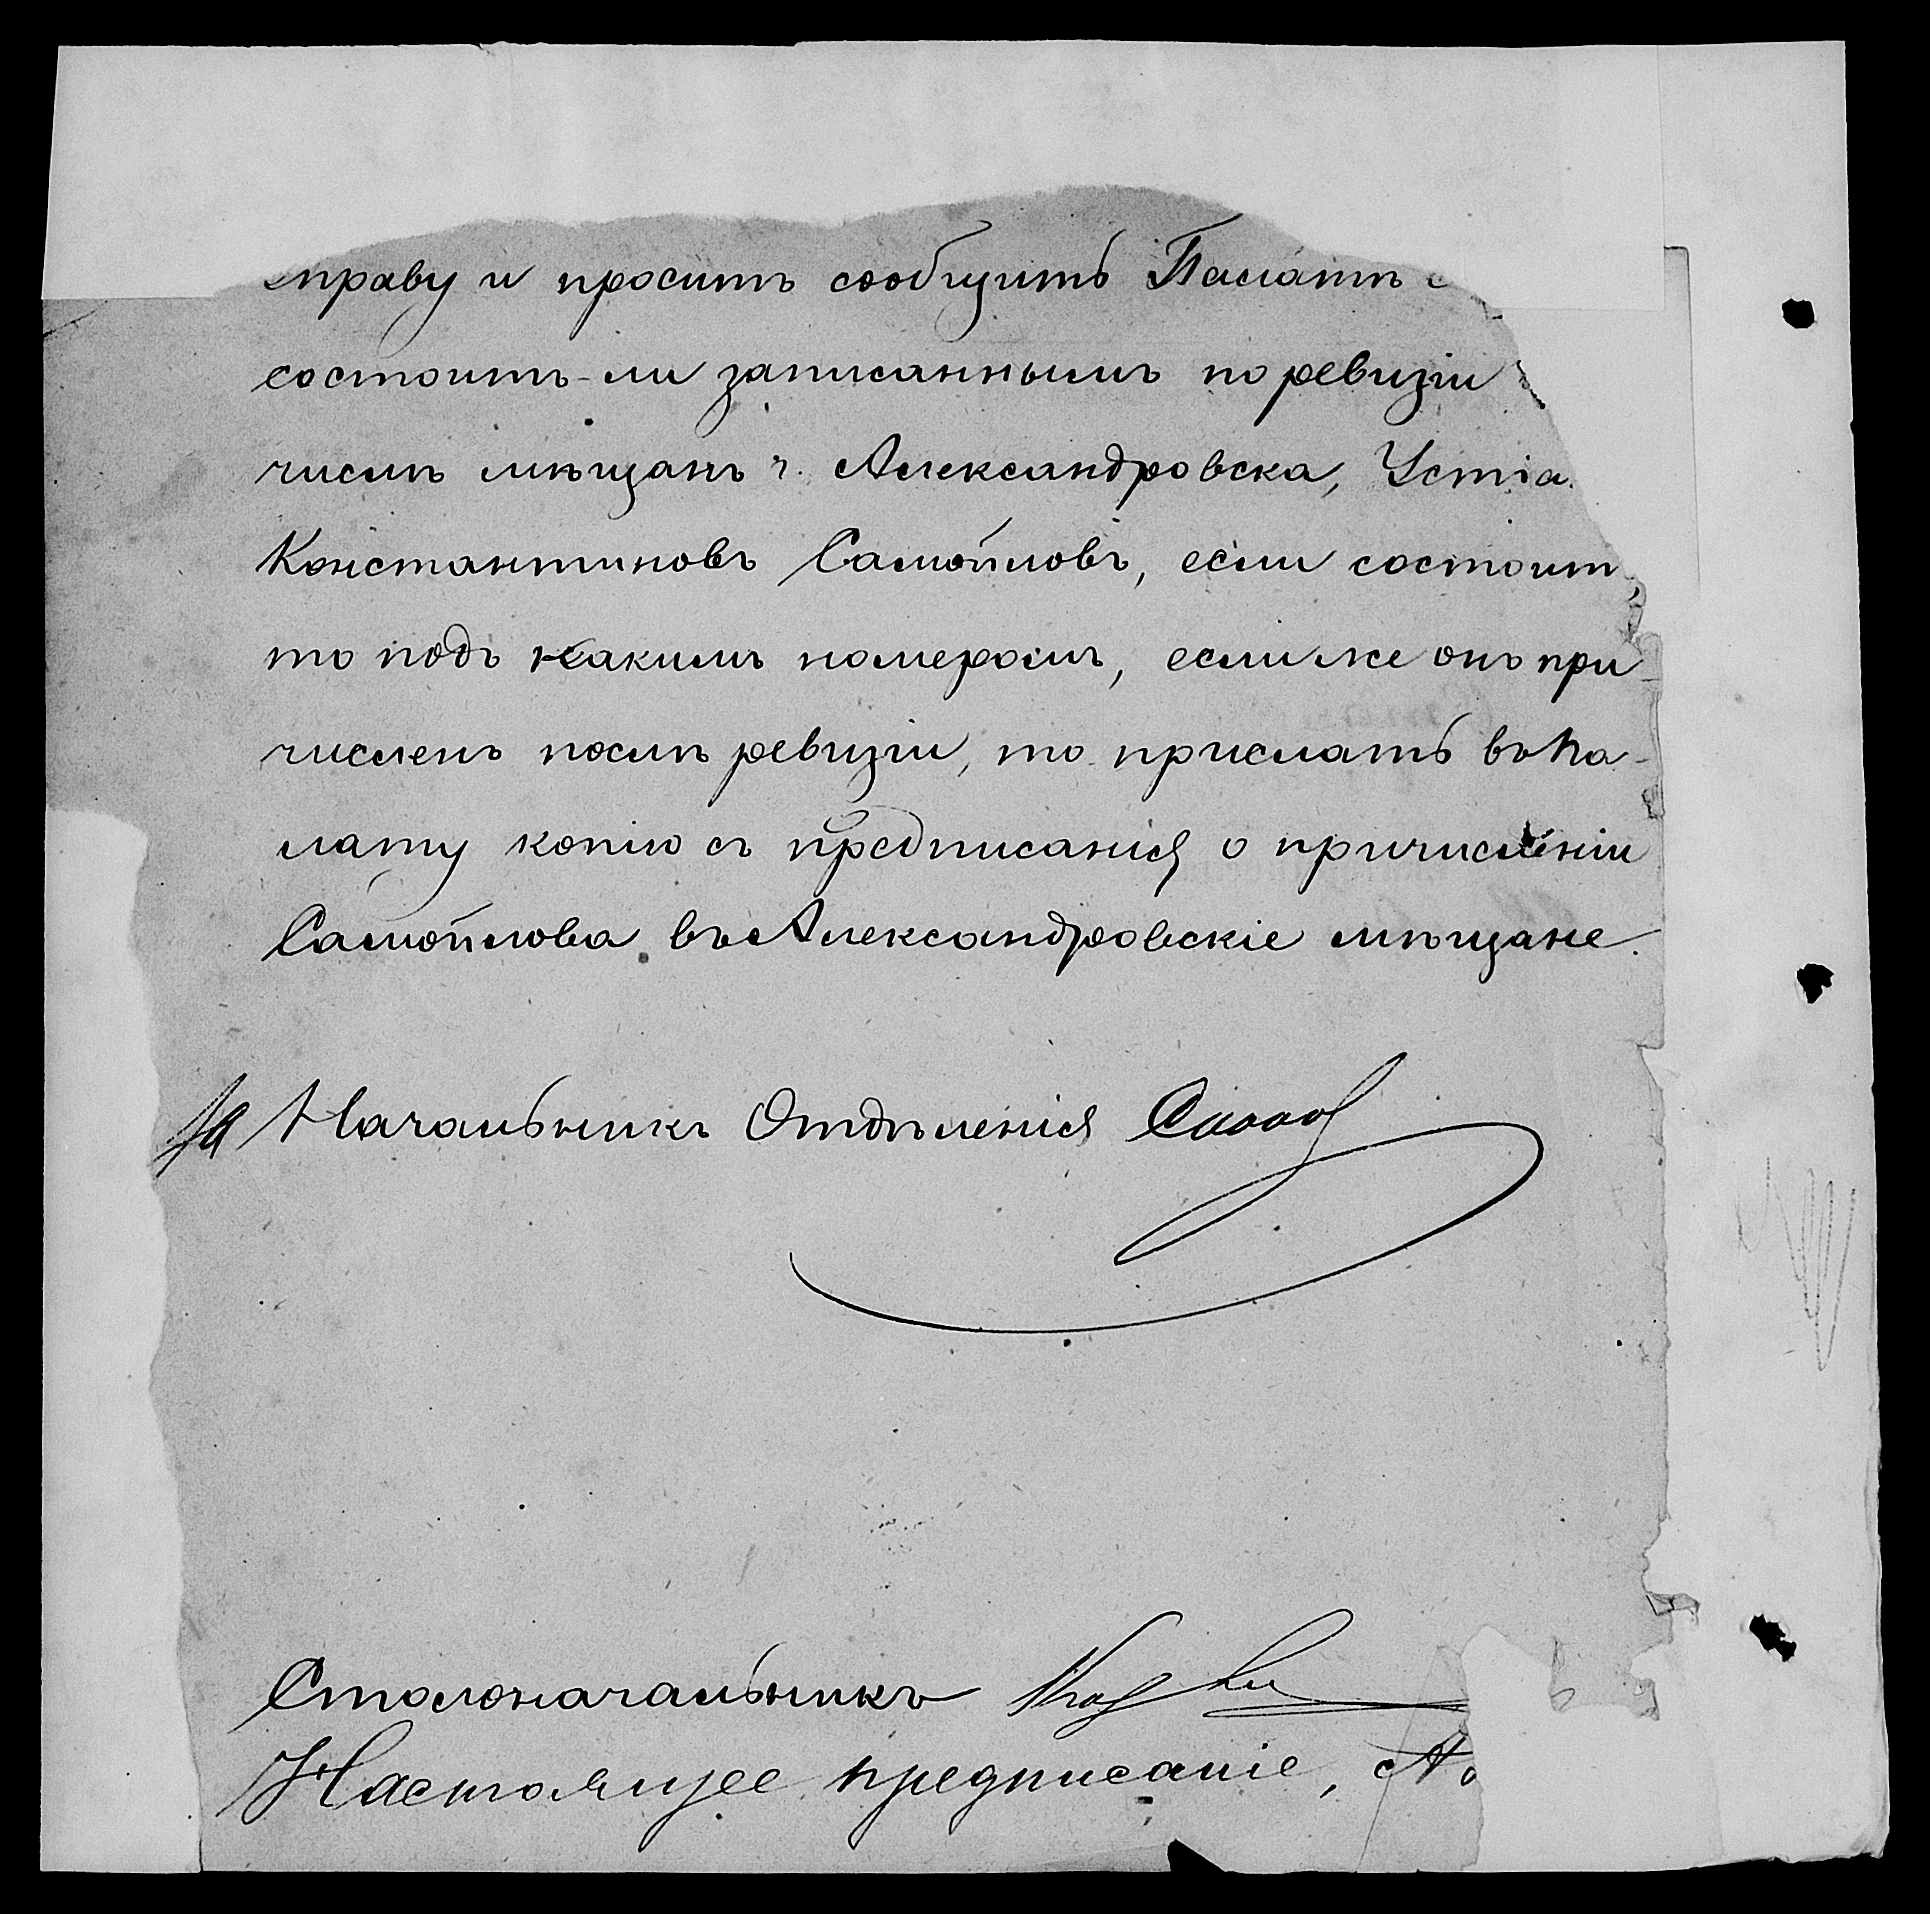 праву и проситъ сообщить Палатѣ
состоитъ-ли записаннымъ по ревизіи
числѣ мѣщанъ г. Александровска, Устіа
Константиновъ Самойловъ, если состоит
то подъ какимъ номеромъ, если же онъ при
численъ послѣ ревизіи, то прислать въ Па-
лату копію съ предписанія о причисленіи
Самойлова въ Александровскіе мѣщане.
За Начальникъ Отдѣленія
Столоначальникъ
Настоящее предписаніе,